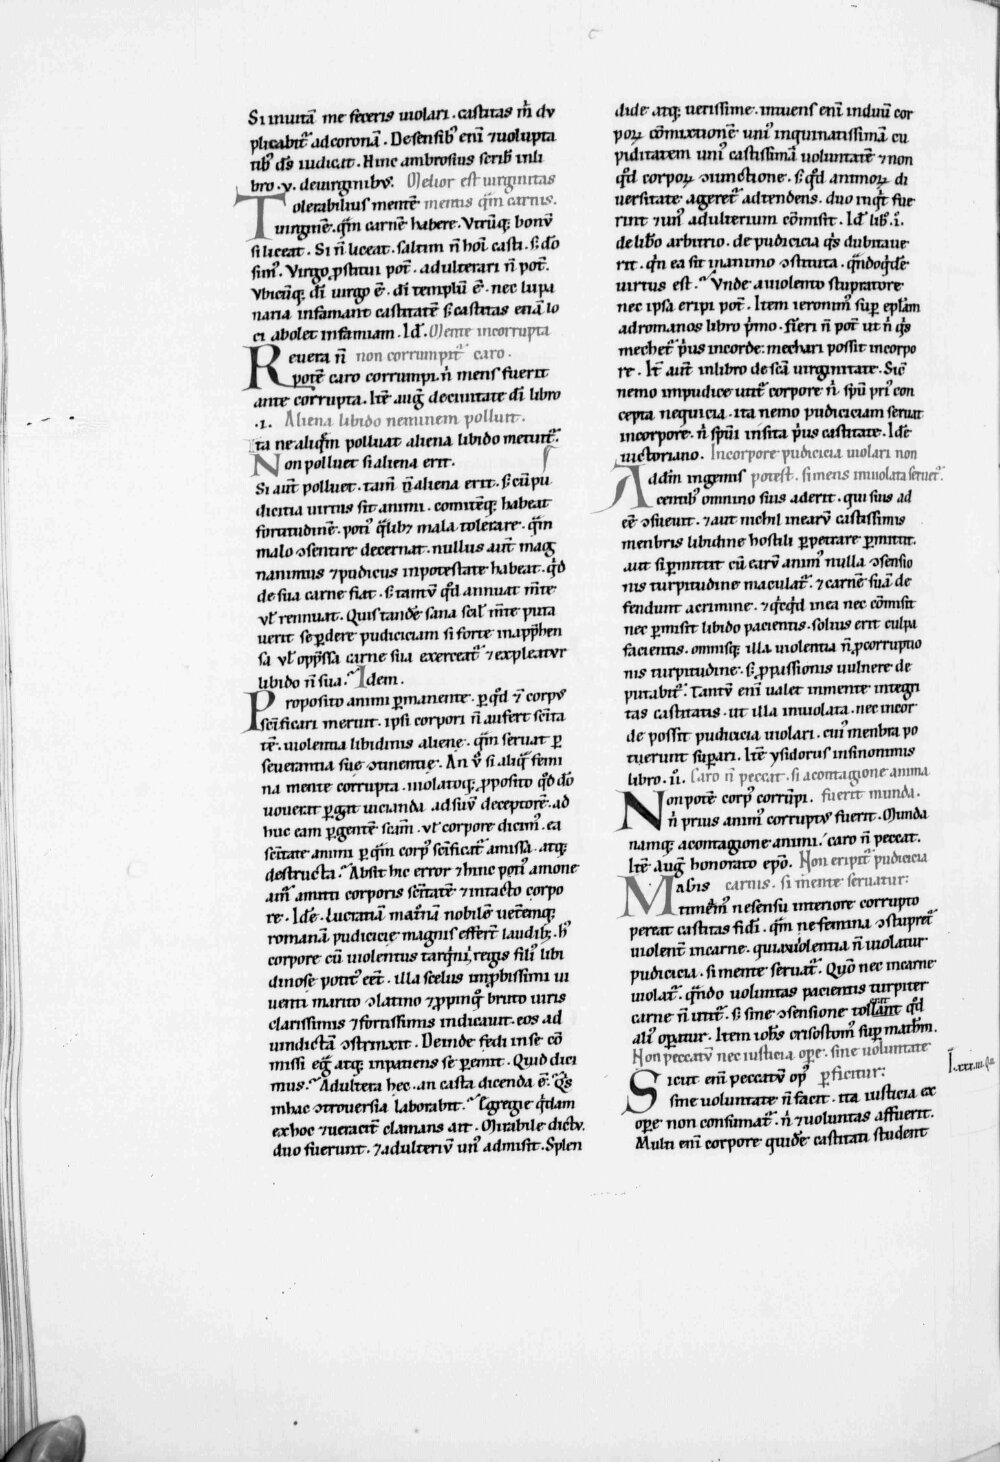 Si inuitā me feceris uiolari . castitas m̄ du
plicabit᷑ ad coronā . De sensib᷒ eni᷑ ⁊ uolupta
tib᷒ d̄s iudicat . Hinc ambrosius scrib᷑ in li
bro .v. de uirginibus . Melior est uirginitas
Tolerabilius mentē mentis q̄m carnis .
uirginē . q̄m carnē habere . Vtrūq; bonū
si liceat . Si n̄ liceat . saltim n̄ hoi᷑ casti . s; d̄o
sim᷒ . Virgo ꝓstitui pot᷑ . adulterari n̄ pot᷑ .
Vbicūq; d̄i uirgo ē . d̄i templū ē . nec lupa
naria infamant castitatē s; castitas etiā lo
ci abolet infamiam . Id᷑ . Mente incorrupta
Reuera n̄ non corrumpit᷑ caro .
potē caro corrumpi . n̄ mens fuerit
ante corrupta . Itē aug᷑ de ciuitate d̄i libro
.i. Aliena libido neminem polluit .
Ita ne aliq̄m polluat aliena libido metuit᷑ .
Non polluet si aliena erit .
Si aut᷑ polluet . tam᷑ n̄ aliena erit . s; cū pu
dicitia uirtus sit animi . comitēq; habeat
fortitudinē . poti᷒ q̄lib; mala tolerare . q̄m
malo ꝯsentire decernat . nullus aut᷑ mag
nanimus ⁊ pudicus in potestate habeat . q̇d
de sua carne fiat . s; tamū q̇d annuat m̄te
uł rennuat . Quis tandē sana scil᷑ m̄te puta
uerit se ꝑdere pudiciciam si forte in app̄hen
sa uł opp̄ssa carne sua exerceat᷑ ⁊ expleatur
libido n̄ sua . Idem .
Proposito animi ꝑmanente . ꝑ q̇d ⁊ corpus
sc̄ificari meruit . ipsi corpori n̄ aufert sc̄ita
tē . uiolentia libidinis aliene . q̄m seruat ꝑ
seuerantia sue ꝯtinentie . An ū si aliq̄ femi
na mente corrupta . uiolatoq; ꝓposito q̇d d̄o
uouerat ꝑgit uicianda ad suū deceptorē . ad
huc eam ꝑgentē sc̄am . uł corpore dicim᷒ . ea
sc̄itate animi ꝑ q̄m corp᷒ sc̄ificat᷑ amissa . atq;
destructa . Absit hic error ⁊ hinc poti᷒ amone
am᷒ amitti corporis sc̄itatē ⁊ intacto corpo
re . Idē . Lucretiā mat᷑nā nobilē uet᷑emq;
romanā pudicicie magnis effert᷑ laudib; . h᷒
corpore cū uiolentus tarq̇ni᷑ regis fili᷒ libi
dinose potit᷒ eēt . illa scelus imp̄bissimi iu
ueni marito ꝯlatino ⁊ ꝓpinq̇ bruto uiris
clarissimis ⁊ fortissimis indicauit . eos ad
uindictā ꝯstrinxit . Deinde fedi in se cō
missi eḡ . atq; inpatiens se ꝑemit . Quid dici
mus . Adultera hec . an casta dicenda ē . Q̇s
in hac ꝯtrouersia laborabit . Egregie q̇dam
ex hoc ⁊ ueracit᷑ clamans ait . Mirabile dictu .
duo fuerunt . ⁊ adulteriū un᷒ admisit . Splen
dide atq; uerissime . intuens eni᷑ in duū cor
poꝝ cōmixtionē uni᷒ inquinatissimā cu
piditatem uni᷒ castissimā uoluntatē ⁊ non
q̇d corpoꝝ ꝯiunctione . s; q̇d animoꝝ di
uersitate ageret᷑ adtendens . duo inq̇t fue
runt ⁊ un᷒ adulterium cōmisit . Id᷑ lib᷑ .i.
de lib̄o arbitrio . de pudicicia q̇s dubitaue
rit . q̇n ea sit in animo ꝯstituta . q̄ndoq̇dē
uirtus est . Vnde a uiolento stupratore
nec ipsa eripi pot᷑ . Item ieronim᷒ sup ep̄lam
ad romanos libro ṗmo . Fieri n̄ pot᷑ ut n̄ q̇s
mechet᷑ ṗus in corde : mechari possit in corpo
re . It᷑ aut᷑ in libro de sc̄a uirginitate . Sic᷑
nemo impudice utit᷑ corpore n̄ sp̄u pri᷒ con
cepta nequicia . ita nemo pudiciciam seruat
in corpore . n̄ sp̄ui insita ṗus castitate . Idē
uictoriano . In corpore pudicicia uiolari non
Addim ingemis potest . si mens inuiolata seruet᷑ .
centib᷒ omnino sius aderit . qui sius ad
eē ꝯsueuit . ⁊ aut nichil in earū castissimis
menbris libidine hostili ꝑpetrare ꝑmittit .
aut si ꝑmittit cū earū anim᷒ nulla ꝯsensio
nis turpitudine maculat᷑ . ⁊ carnē suā de
fendunt a crimine . ⁊ q̇cq̇d in ea nec cōmisit
nec ꝑmisit libido pacientis . solius erit culpa
facientis . omnisq; illa uiolentia n̄ ꝓ corruptio
nis turpitudine . s; ꝓ passionis uulnere de
putabit᷑ . Tantū eni᷑ ualet in mente integri
tas castitatis . ut illa inuiolata . nec in cor
de possit pudicicia uiolari . cui᷒ menbra po
tuerunt sup̄ari . Itē ysidorus in sinonimis
libro .ii. Caro n̄ peccat . si a contagione anima
Non potē corp᷒ corrūpi . fuerit munda .
n̄ prius anim᷒ corruptus fuerit . Munda
namq; a contagione animi . caro n̄ peccat .
Itē aug᷑ honorato ep̄o . Non eripit᷑ pudicicia
Magis carnis . si mente seruatur :
timēm᷒ ne sensu interiore corrupto
pereat castitas fidi᷑ . q̄m ne femina ꝯstupret᷑
uiolent᷑ in carne . quia uiolentia n̄ uiolatur
pudicicia . si mente seruat᷑ . Quō nec in carne
uiolat᷑ . q̄ndo uoluntas pacientis turpiter
carne n̄ utit᷑ . s; sine ꝯsensione tollant q̇d
ali᷒ op̄atur . Item ioh̄s crisostom᷒ sup math̄m .
Non peccatū nec iusticia op̄e . sine uoluntate
Sicut eni᷑ peccatū op᷒ ꝑficitur :
sine uoluntate n̄ facit . ita iusticia ex
op̄e non consumat᷑ . n̄ ⁊ uoluntas affuerit .
Multi eni᷑ corpore quidē castitati student